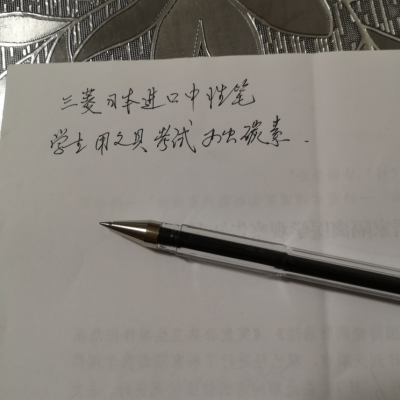 三菱日本进口中性笔
学生用文具考试办公碳素.